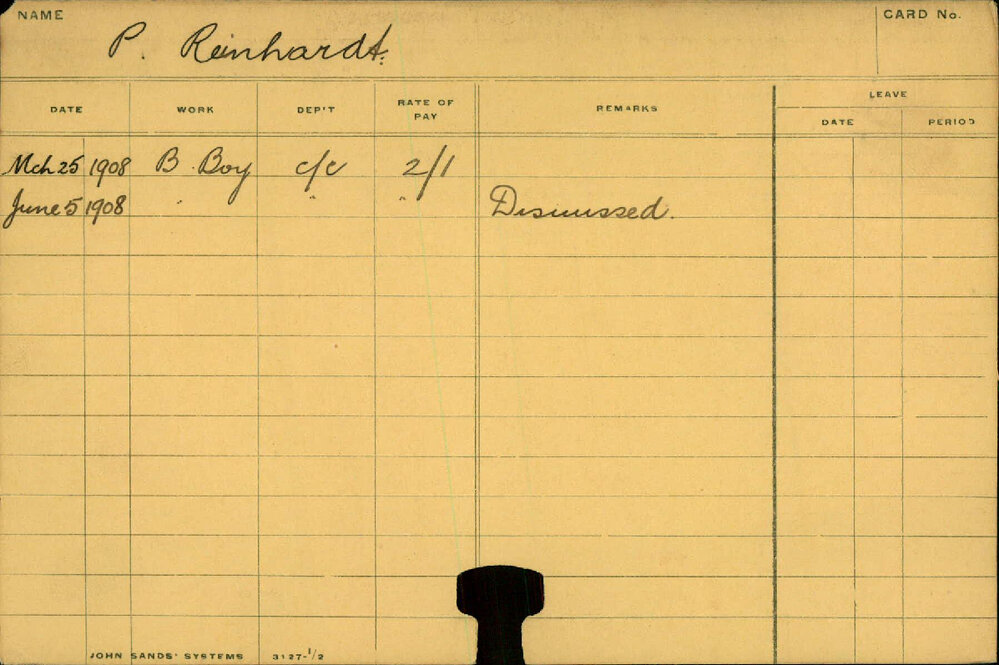 NAME
P. Reinhardt.
CARD No.
DATE WORK DEP'T RATE OF PAY REMARKS LEAVE
DATE PERIOD
Mch 25 1908 B. Boy c/c 2/1
June 5 1908 " " " Dismissed.
JOHN SANDS' SYSTEMS 3127-1/2